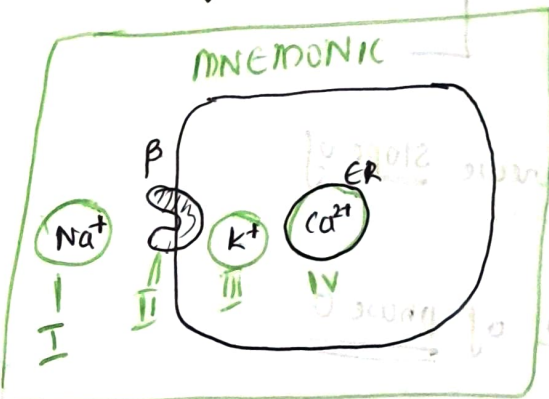 MNEMONIC
β
ER
Na+
K+
Ca2+
I
II
III
IV